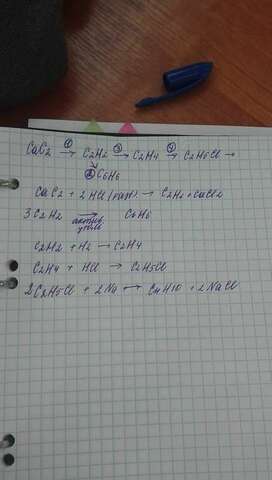 CaC2 ①→ C2H2 ③→ C2H4 ④→ C2H5Cl →
② C6H6
CaC2 + 2HCl → C2H2 + CaCl2
3C2H2 → C6H6
актив.
уголь
C2H2 + H2 → C2H4
C2H4 + HCl → C2H5Cl
2C2H5Cl + 2Na → C4H10 + 2NaCl